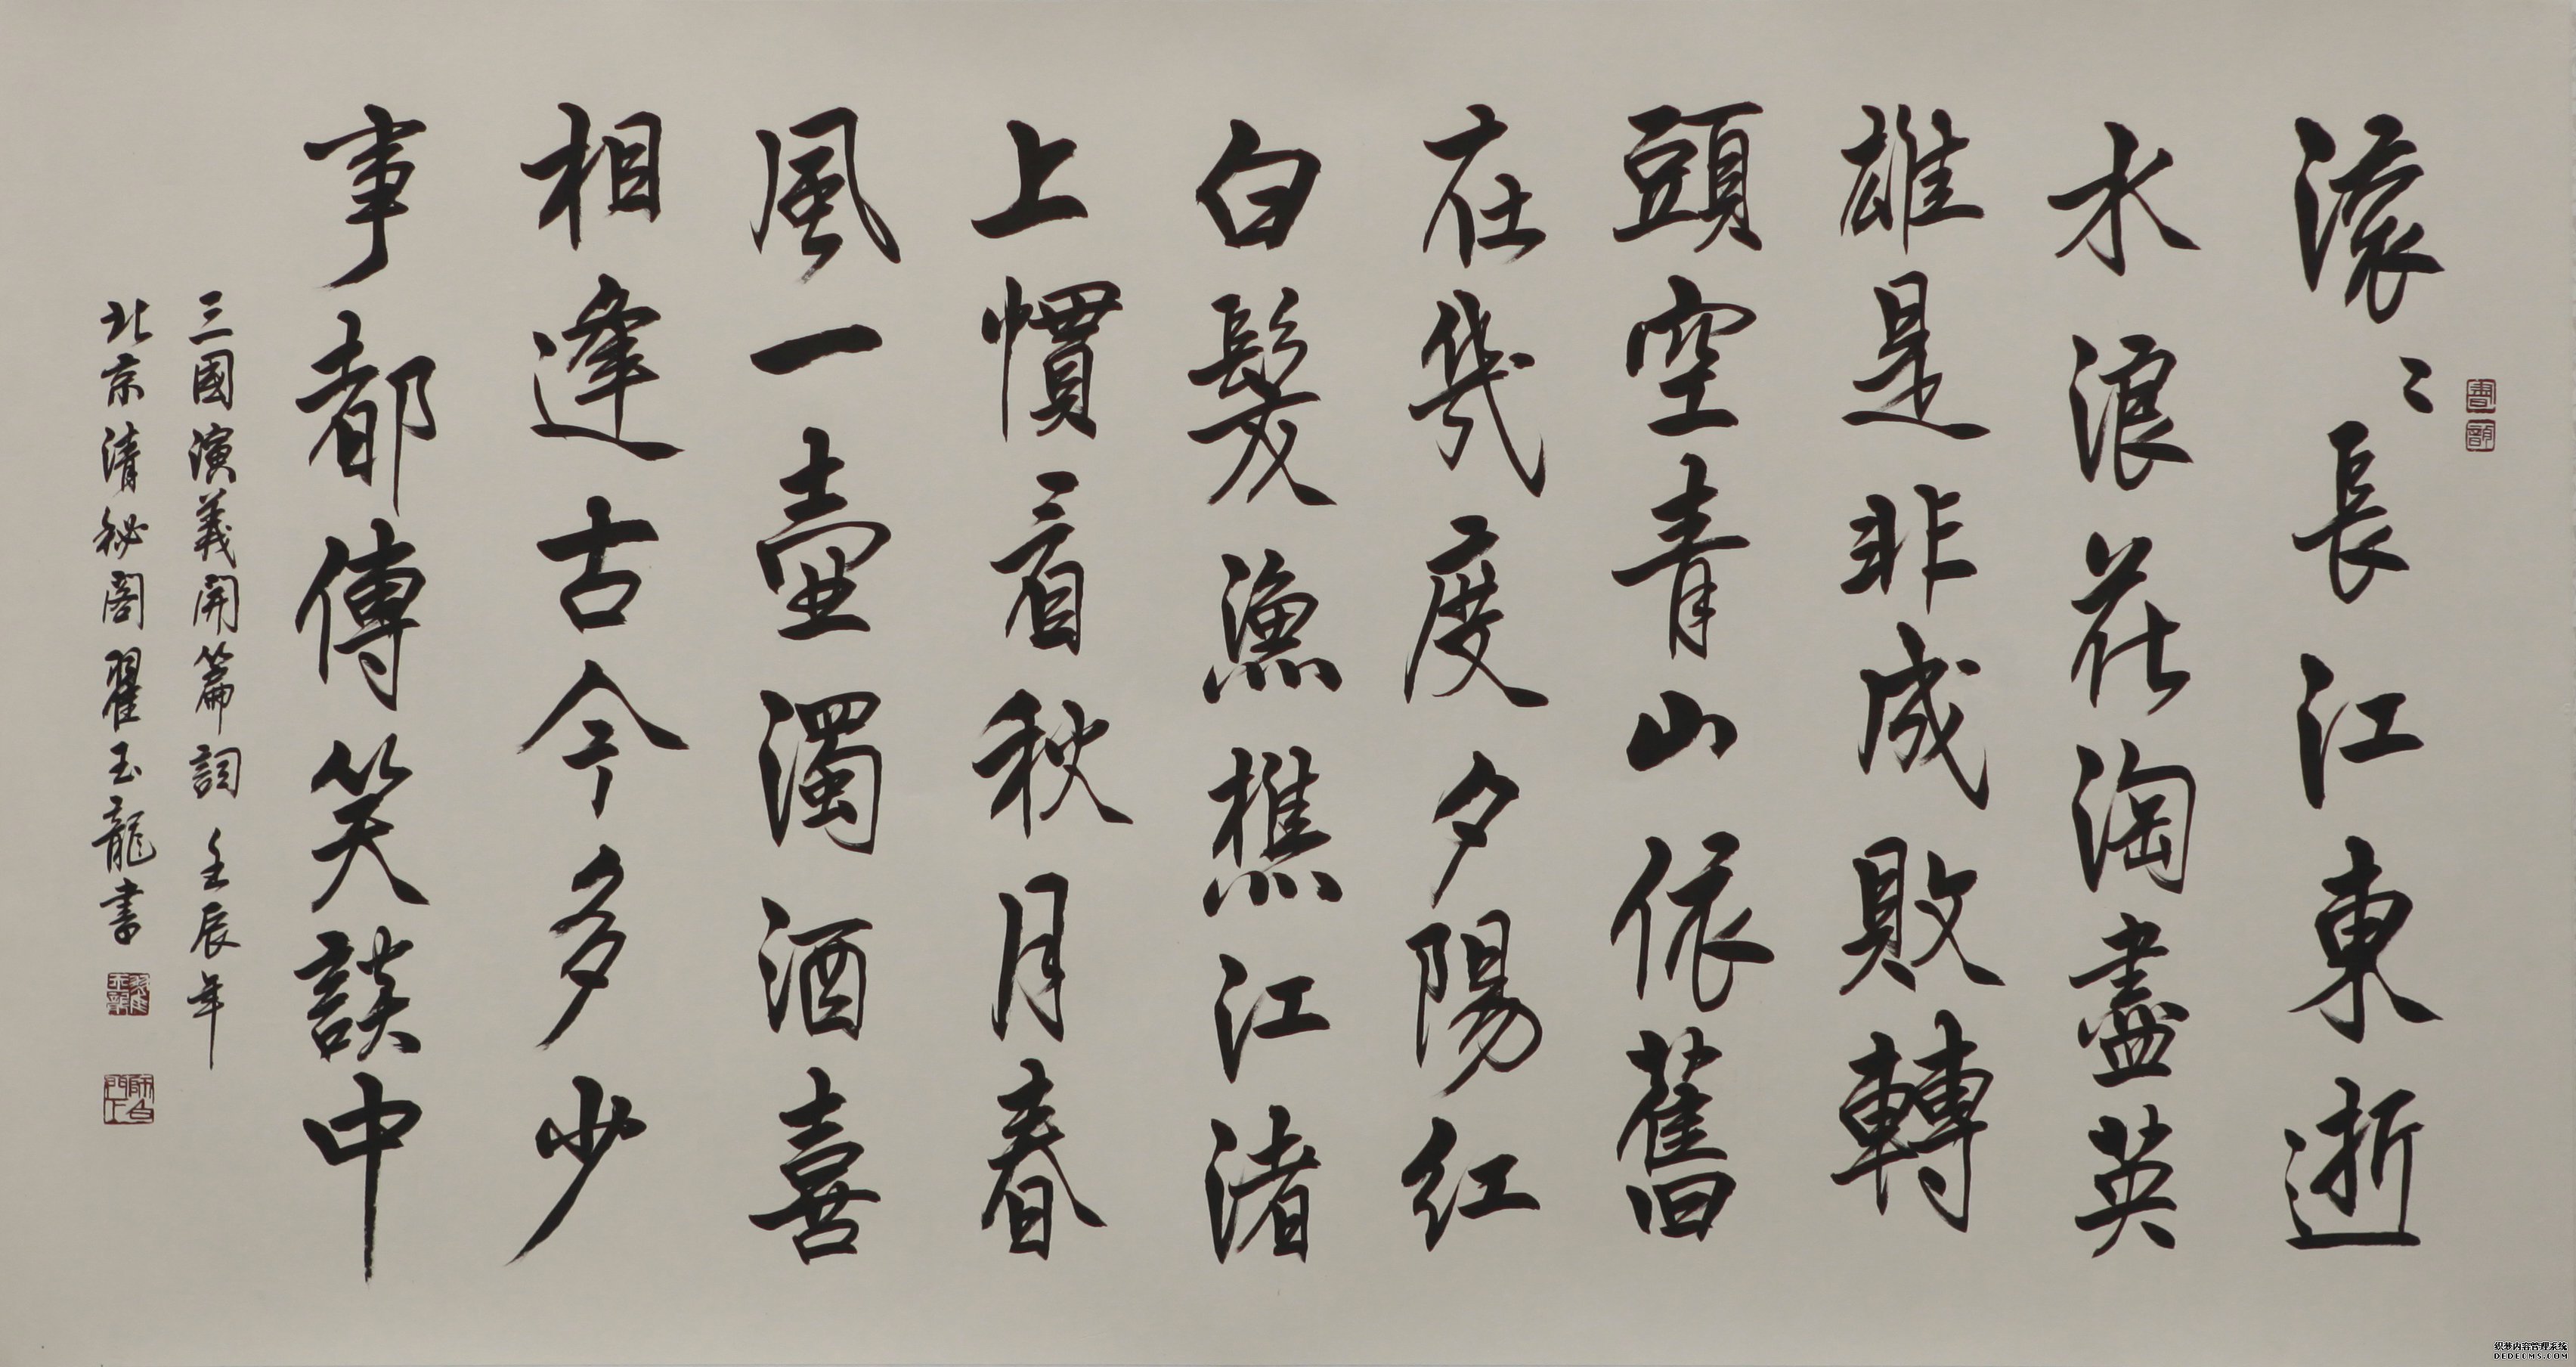 滚〻長江東逝
水浪花淘盡英
雄是非成敗轉
頭空青山依舊
在幾度夕陽紅
白髮漁樵江渚
上慣看秋月春
風一壺濁酒喜
相逢古今多少
事都傳笑談中
三國演義開篇詞 壬辰年
北京清秘閣翟玉龍書
织梦内容管理系统
DEDECMS.COM